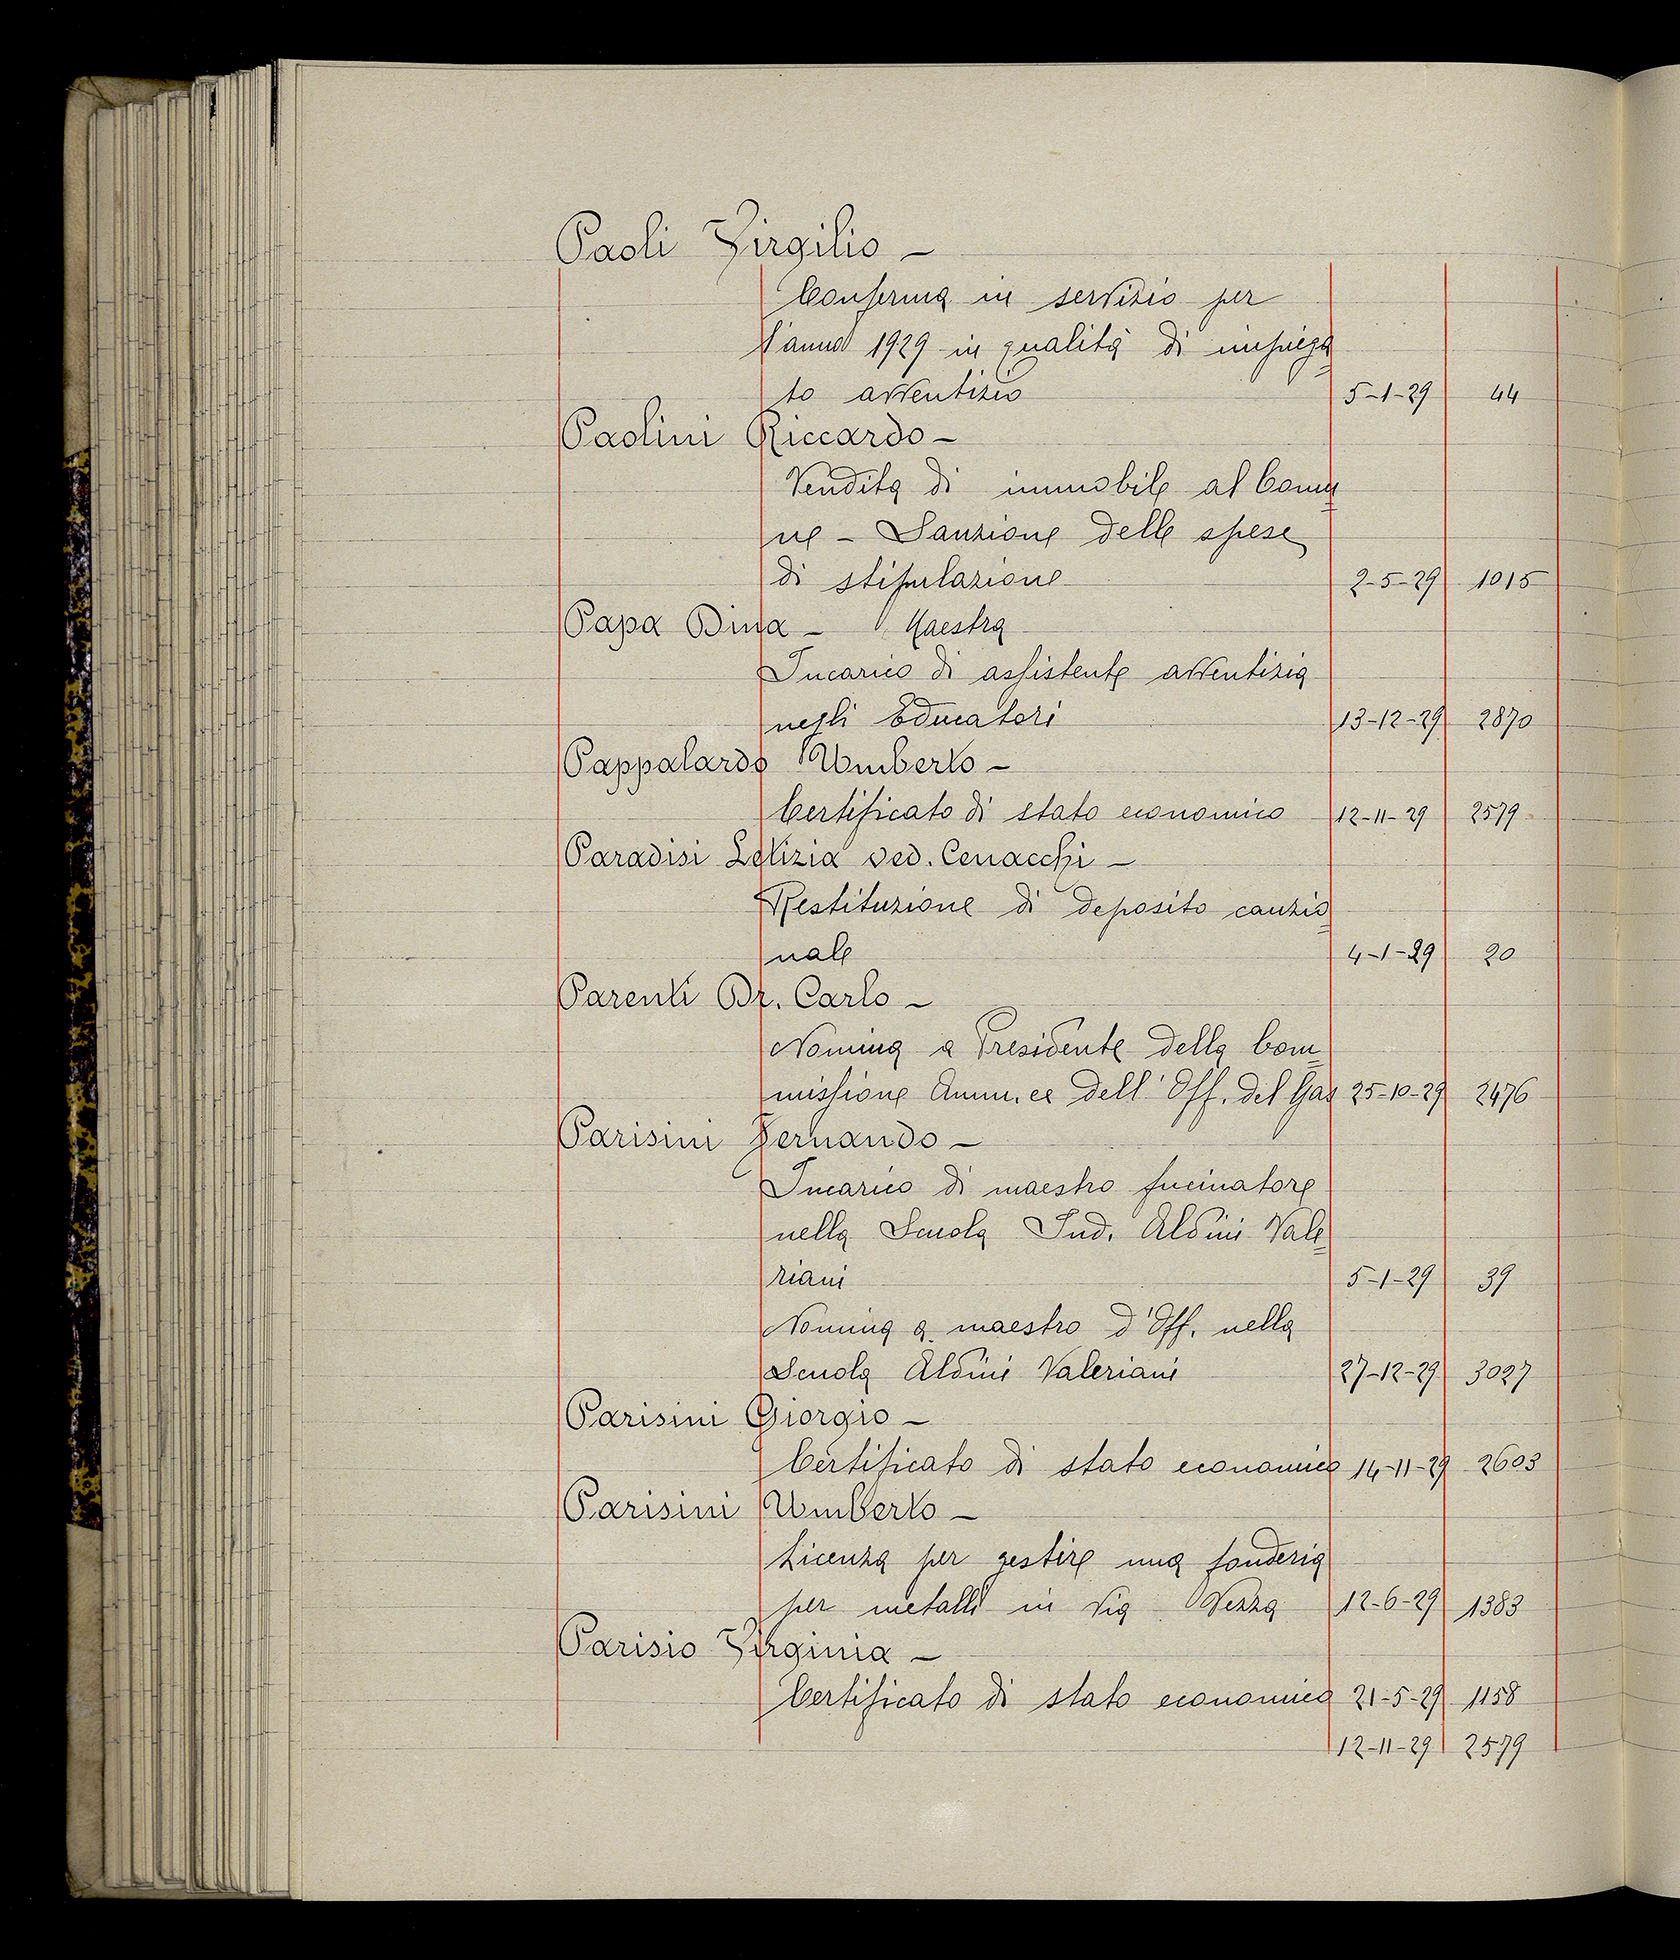 Paoli Virgilio –
Conferma in servizio per
l'anno 1929 in qualità di impiega=
to avventizio 5-1-29 44
Paolini Riccardo –
Vendita di immobile al Comu=
ne – Sanzione delle spese
di stipulazione 2-5-29 1015
Papa Dina – Maestra
Incarico di assistente avventizia
negli Educatori 13-12-29 2870
Pappalardo Umberto –
Certificato di stato economico 12-11-29 2579
Paradisi Letizia ved. Cenacchi –
Restituzione di deposito cauzio=
nale 4-1-29 20
Parenti Dr. Carlo –
Nomina a Presidente della Com=
missione Amm.ce dell'Off. del Gas 25-10-29 2476
Parisini Fernando –
Incarico di maestro fucinatore
nella Scuola Ind. Aldini Vale=
riani 5-1-29 39
Nomina a maestro d'Off. nella
Scuola Aldini Valeriani 27-12-29 3027
Parisini Giorgio –
Certificato di stato economico 14-11-29 2603
Parisini Umberto –
Licenza per gestire una fonderia
per metalli in via Vezza 12-6-29 1383
Parisio Virginia –
Certificato di stato economico 21-5-29 1158
12-11-29 2579